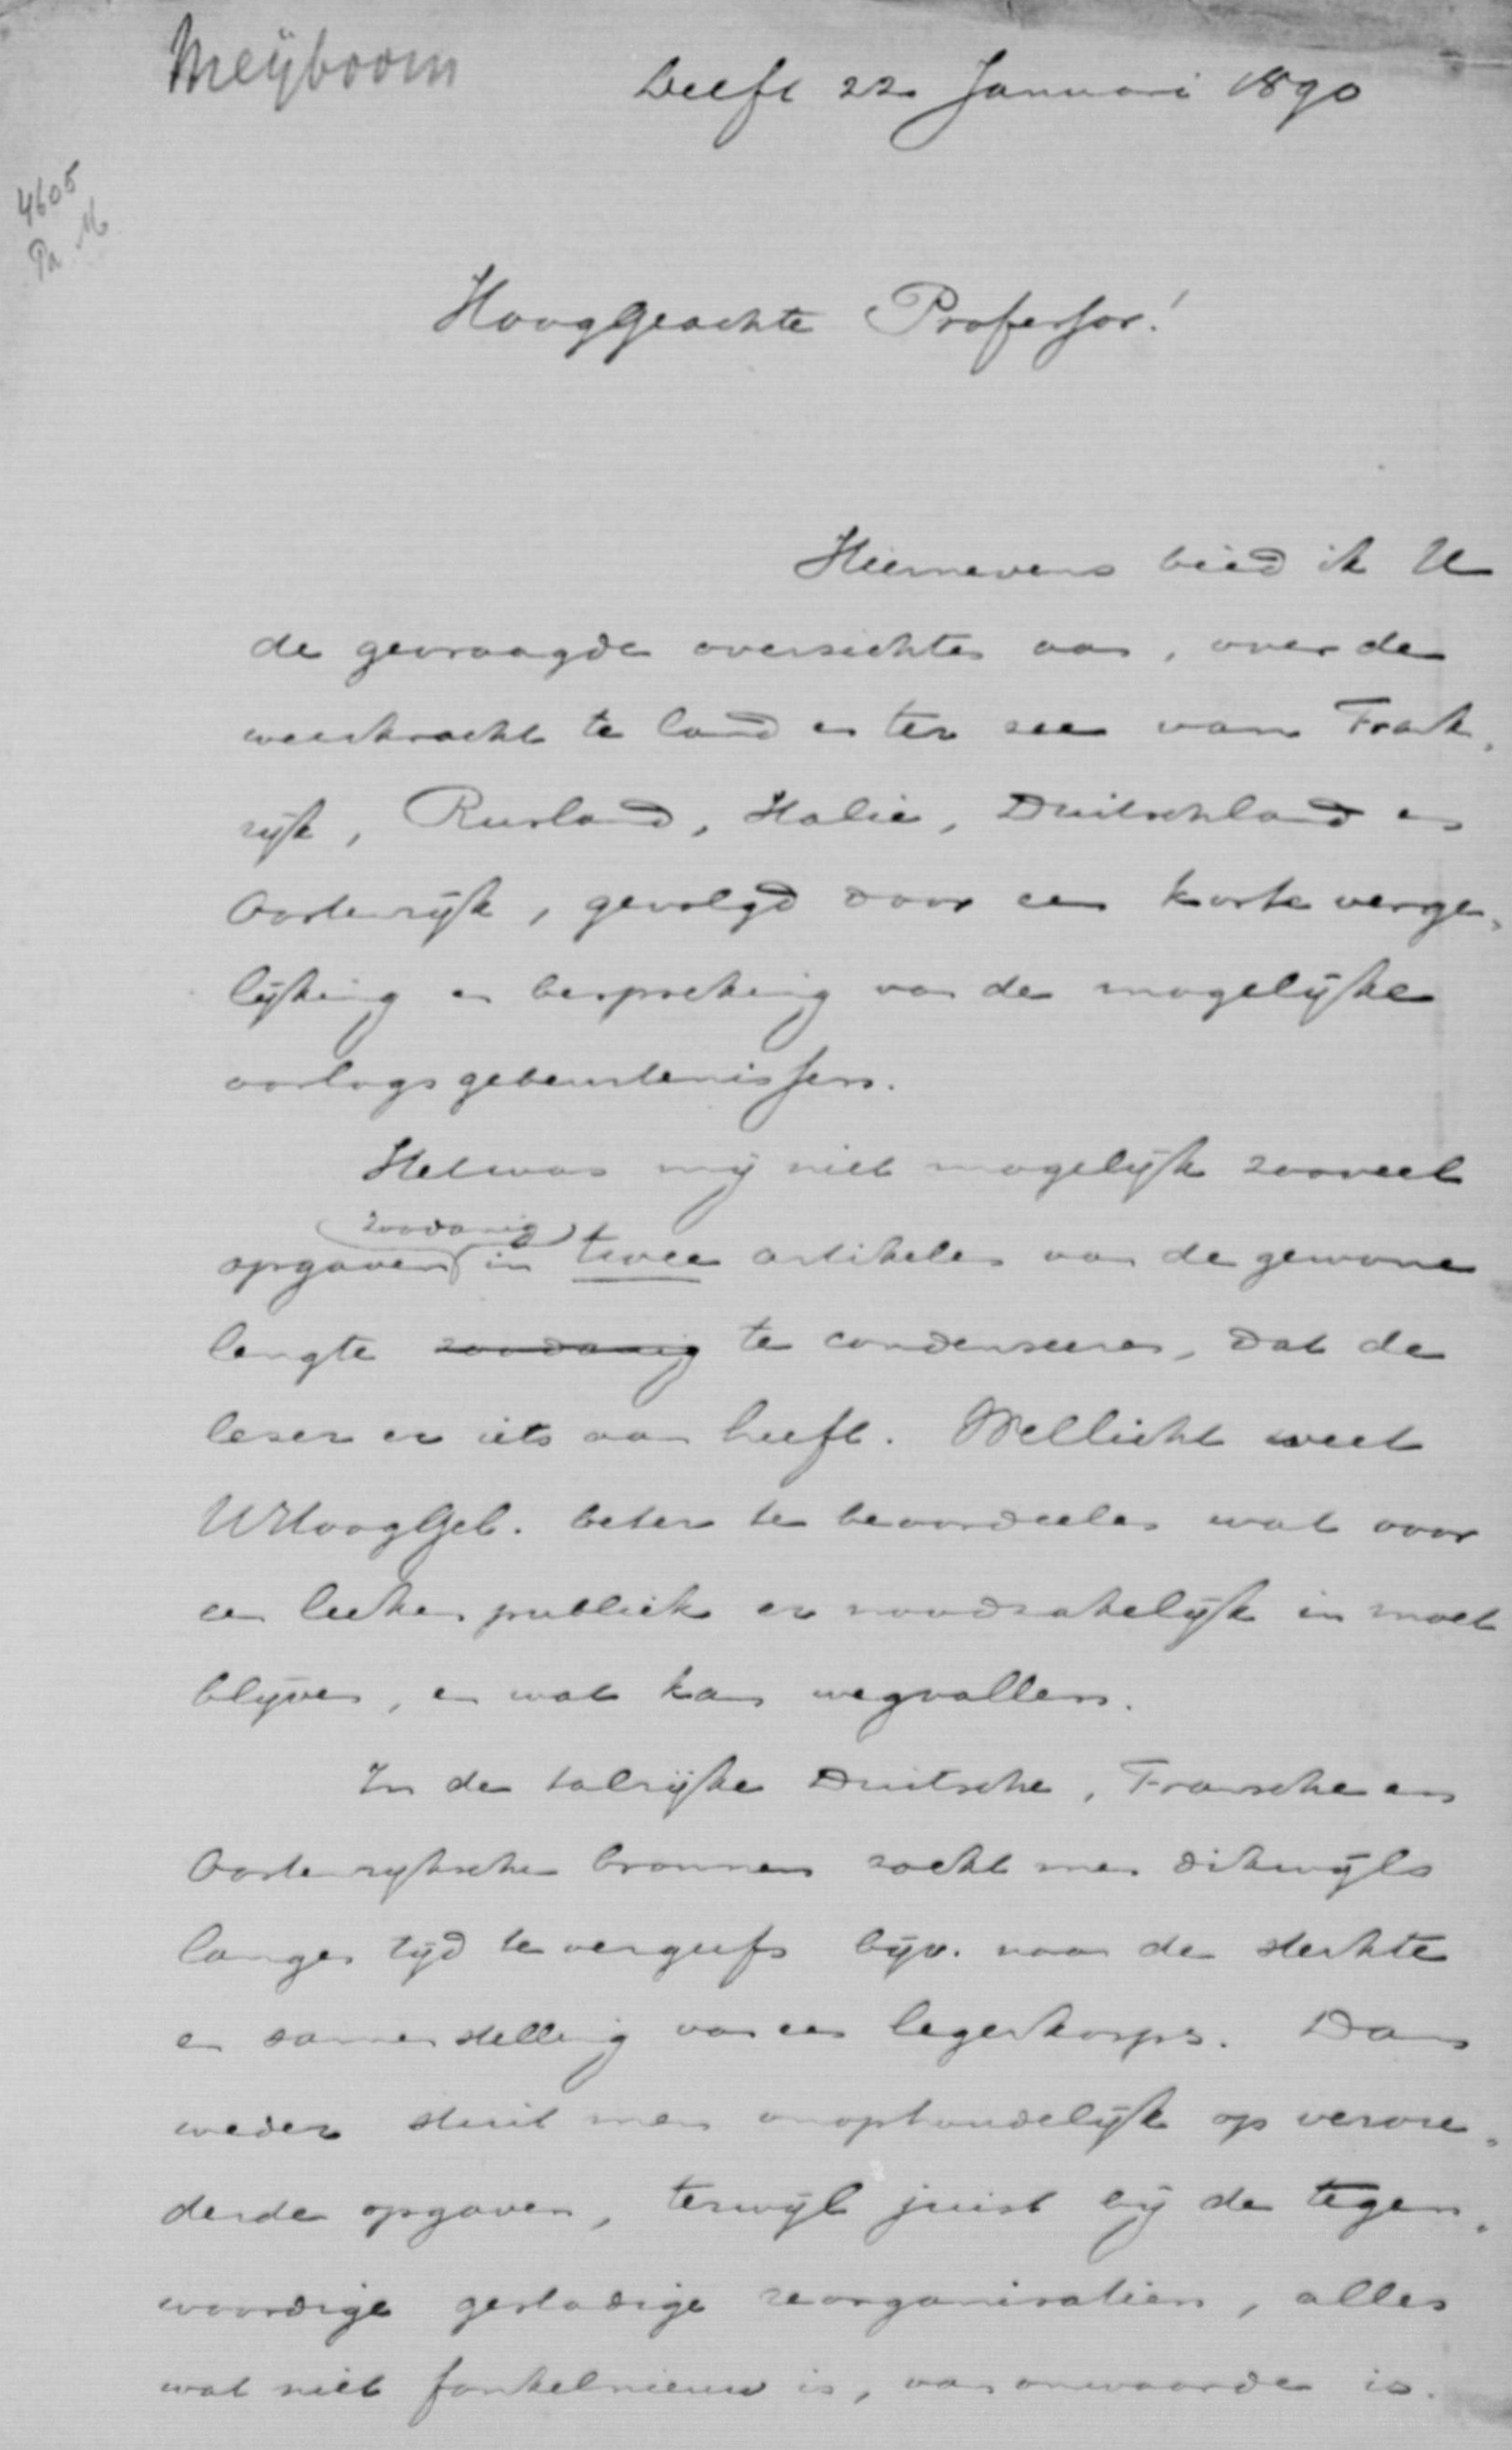 Meijboom
Delft 22 Januari 1890
4605
Pa M
HoogGeachte Professor!
Hiernevens bied ik U
de gevraagde overzichten aan, over de
weerkracht te land en ter zee van Frank„
rijk, Rusland, Italië, Duitschland en
Oostenrijk, gevolgd door een korte verge„
lijking en bespreking van de mogelijke
oorlogsgebeurtenissen.
Het was mij niet mogelijk zooveel
zoodanig
opgaven in twee artikelen van de gewone
lengte zoodanig te condenseeren, dat de
lezer er iets aan heeft. Wellicht weet
UHoogGel. beter te beoordeelen wat voor
een leeken publiek er noodzakelijk in moet
blijven, en wat kan wegvallen.
In de talrijke Duitsche, Fransche en
Oostenrijksche bronnen zoekt men dikwijls
langen tijd te vergeefs bijv. naar de sterkte
en samenstelling van een legerkorps. Dan
weder stuit men onophoudelijk op veroue„
derde opgaven, terwijl juist bij de tegen„
woordige gestadige reorganisatiën, alles
wat niet fonkelnieuw is, van onwaarde is.